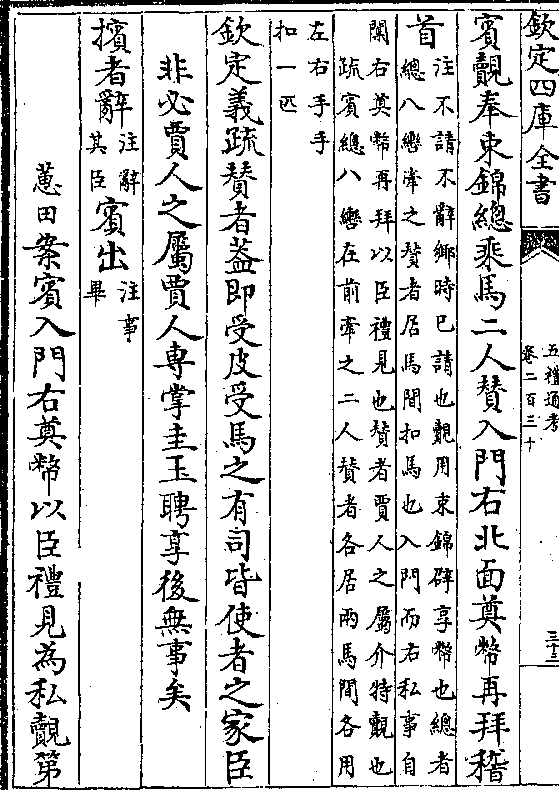 欽定四庫全書
五禮通考
卷二百三十
三十三
賓覿奉束錦總乘馬二人贊入門右北面奠幣再拜稽
首
注不請不辭鄉時已請也覿用束錦辟享幣也總者
總八轡牽之贊者居馬間扣馬也入門而右私事自
闑右奠幣再拜以臣禮見也贊者賈人之屬介特覿也
疏賓總八轡在前牽之二人贊者各居兩馬間各用
左右手手
扣一匹
欽定義疏贊者蓋即受皮受馬之有司皆使者之家臣
非必賈人之屬賈人專掌圭玉聘享後無事矣
擯者辭
注辭
其臣
賓出
注事
畢
蕙田案賓入門右奠幣以臣禮見為私覿第